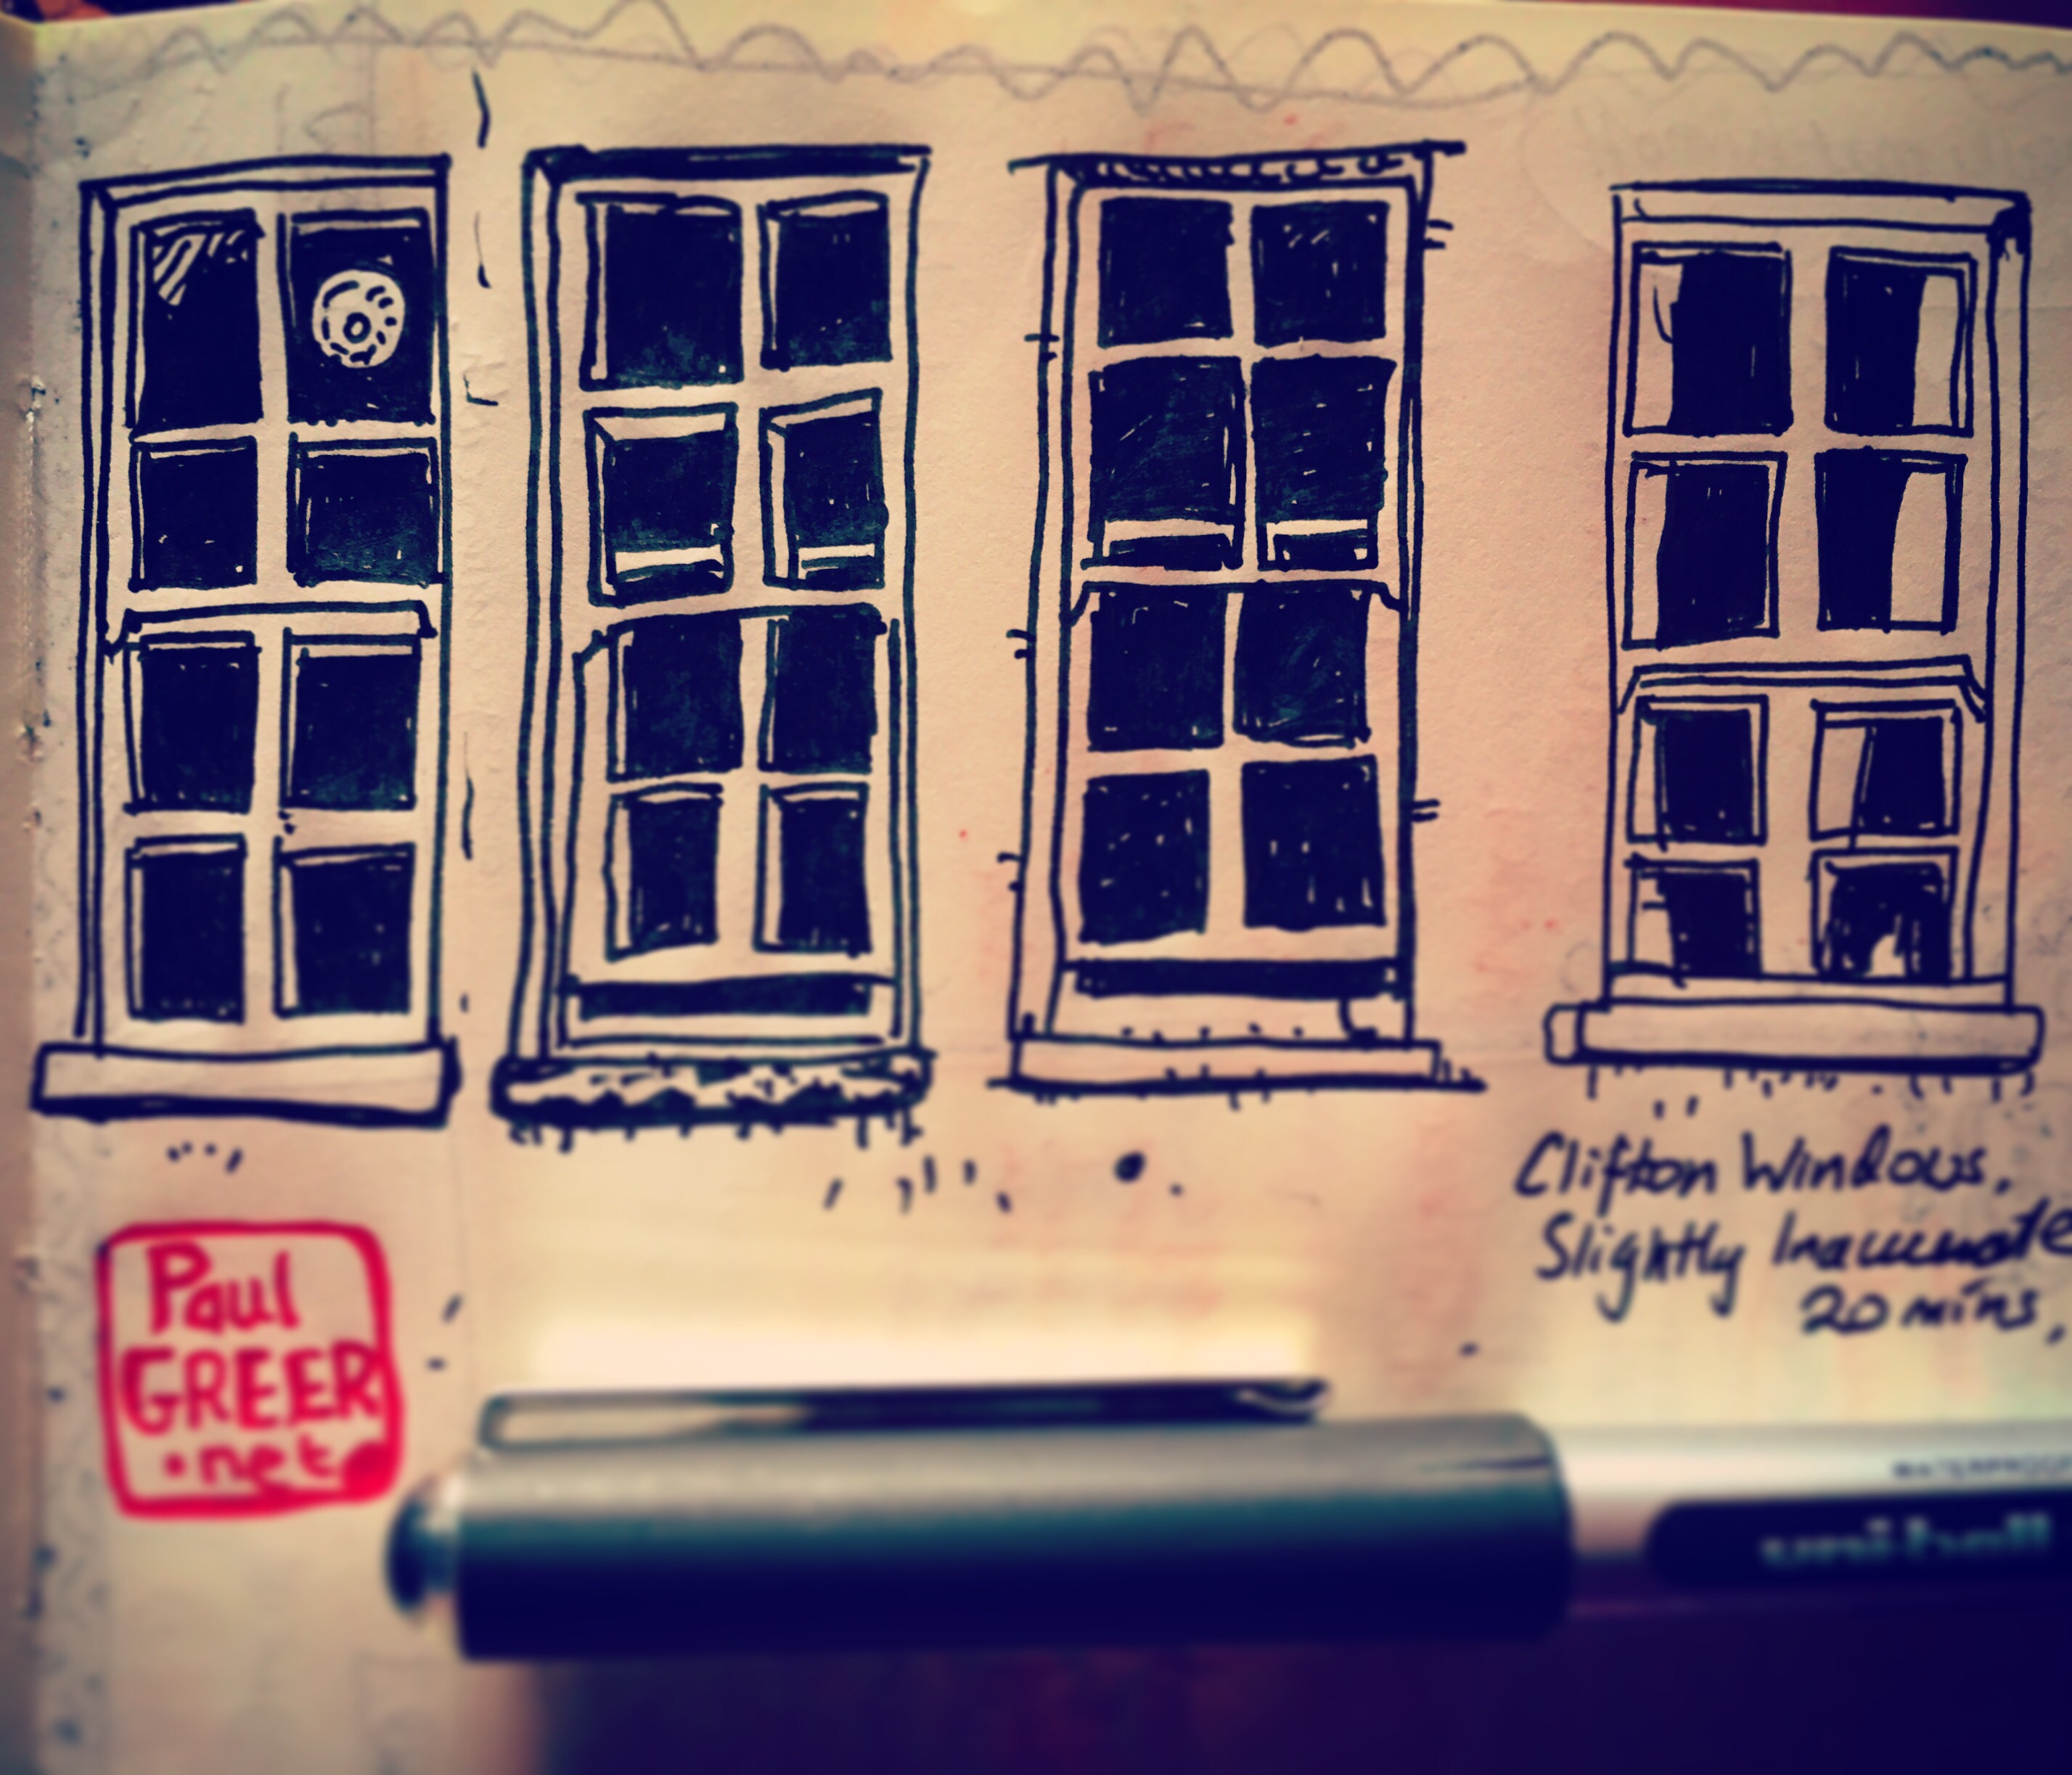 Clifton Windows.
Slightly Inaccurate
20 mins,
Paul
GREER
.net
WATERPROOF
uni-ball